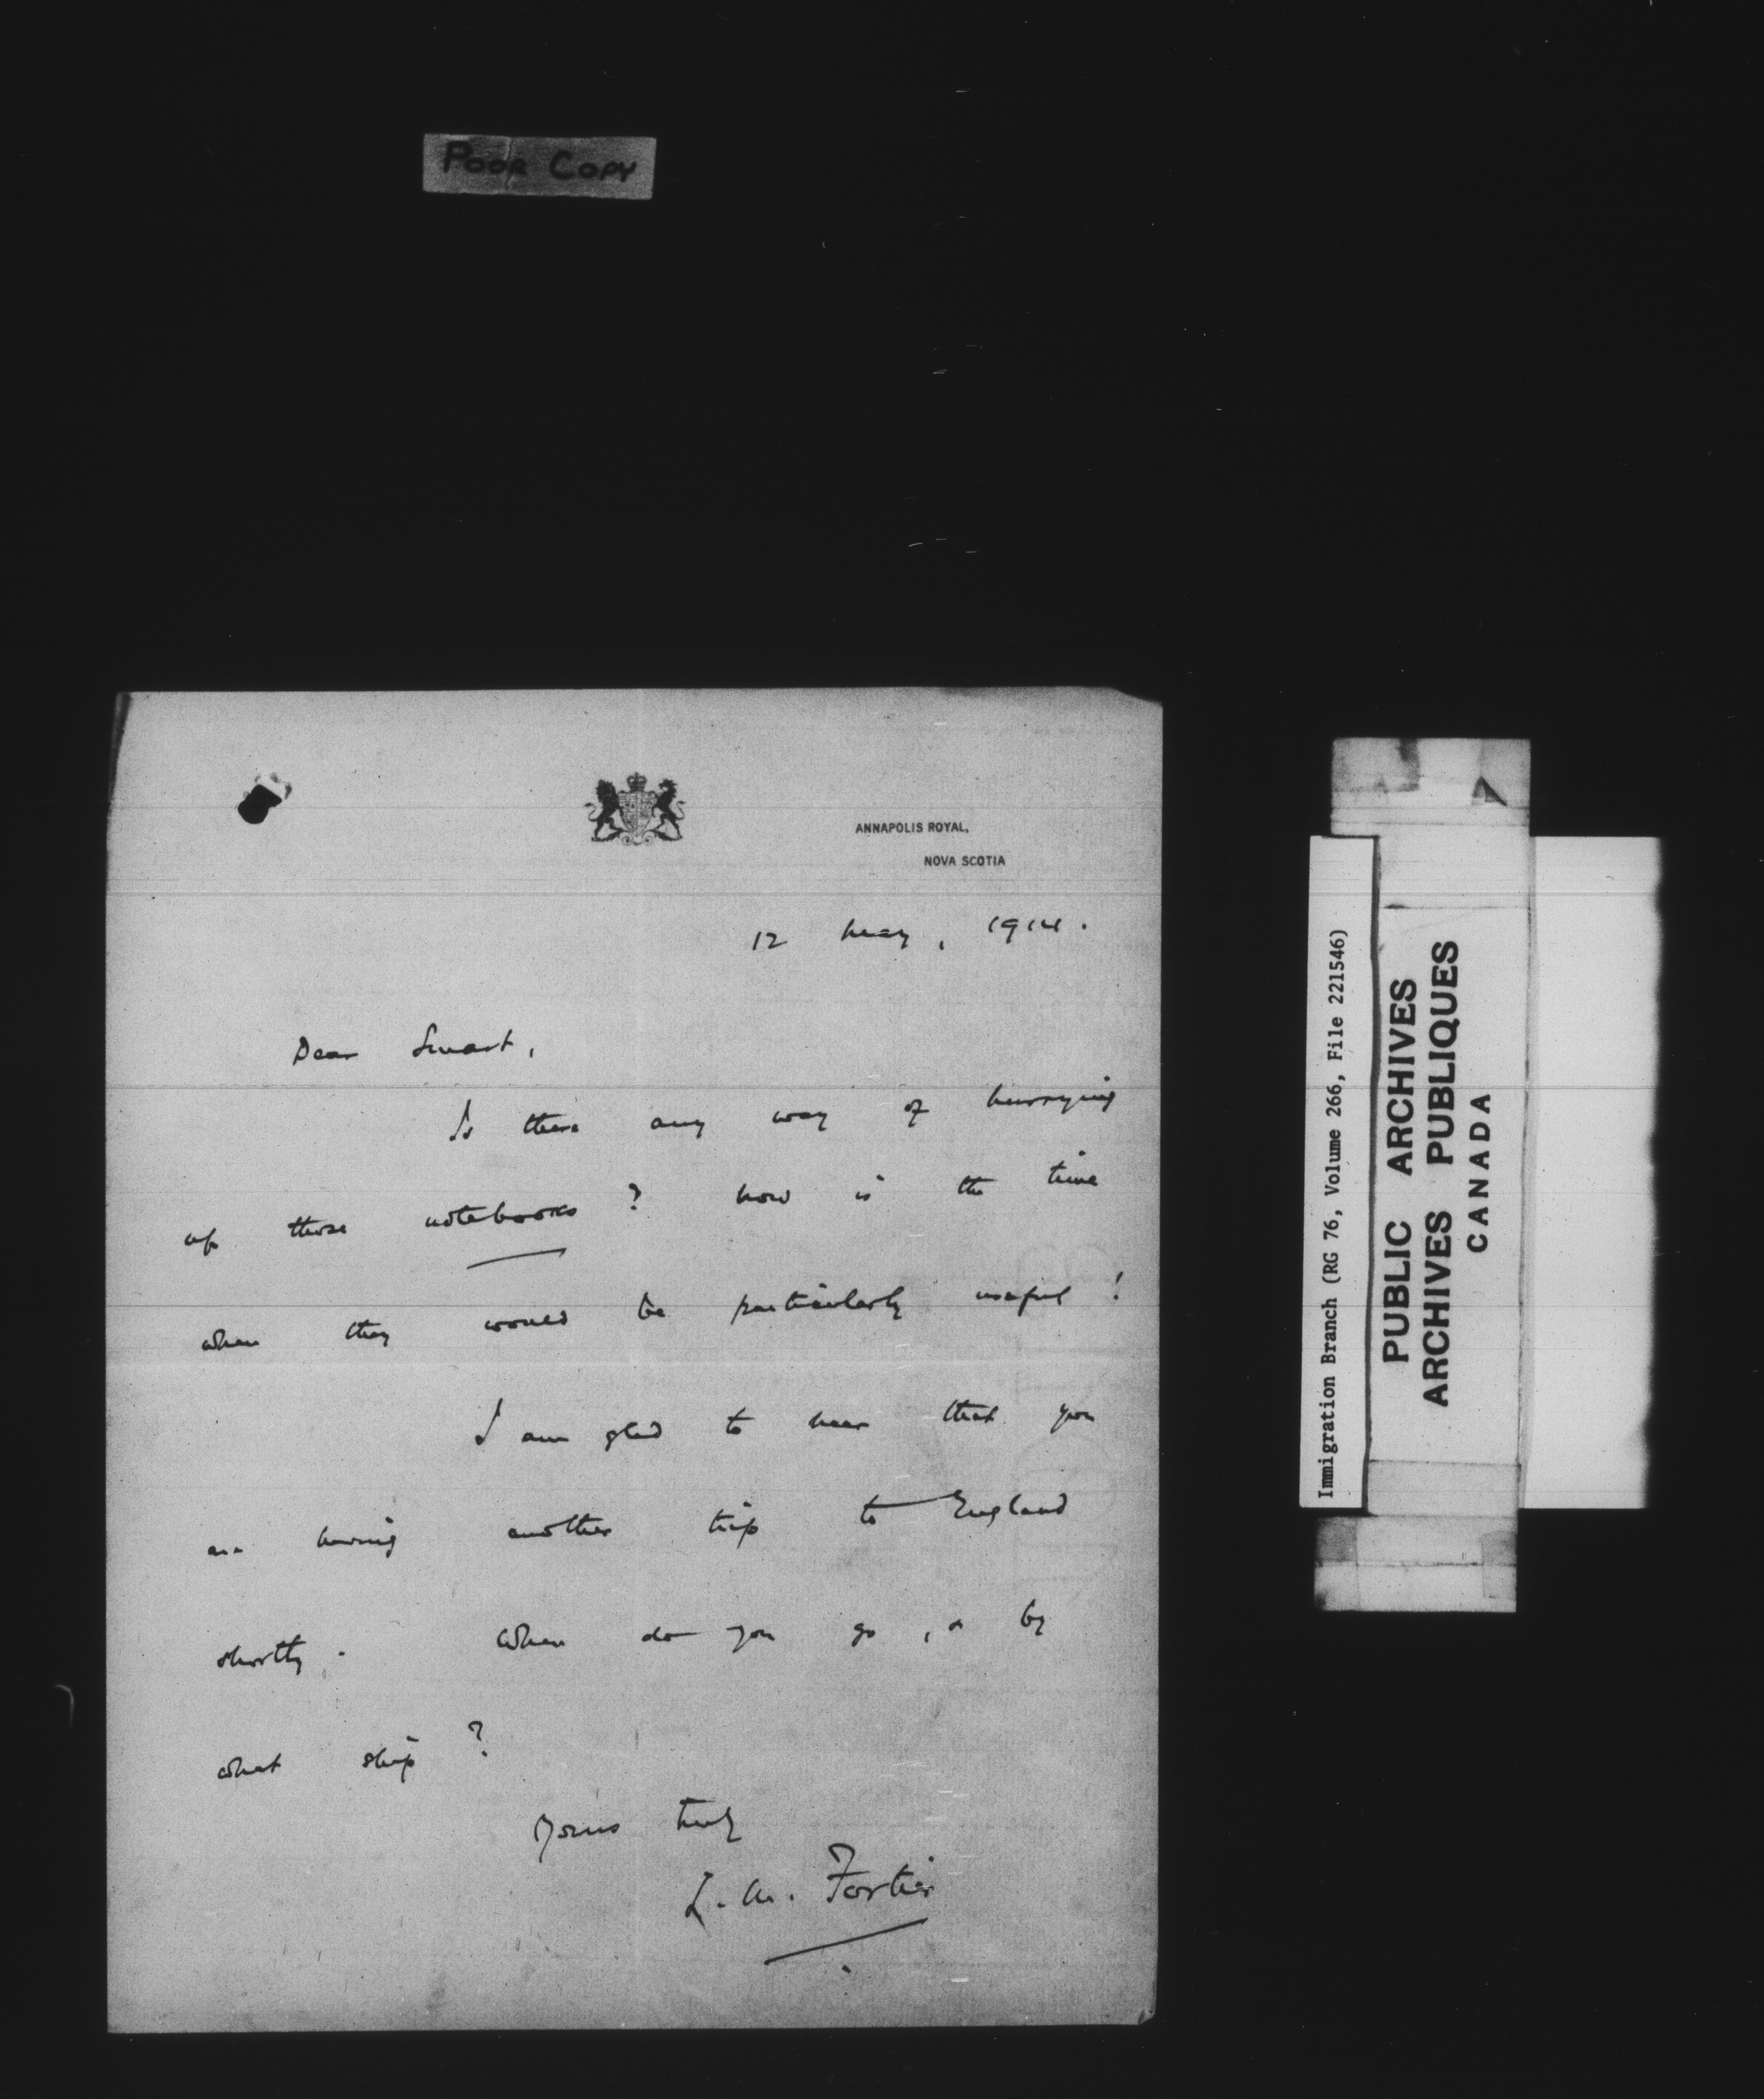 POOR COPY
ANNAPOLIS ROYAL,
NOVA SCOTIA
12 May, 1914.
Dear Smart,
Is there any way of hurrying
up those notebooks? Now is the time
when they would be particularly useful!
I am glad to hear that you
are having another trip to England
shortly. When do you go, & by
what ship?
Yours truly
L. M. Fortier
Immigration Branch (RG 76, Volume 266, File 221546)
PUBLIC ARCHIVES
ARCHIVES PUBLIQUES
CANADA